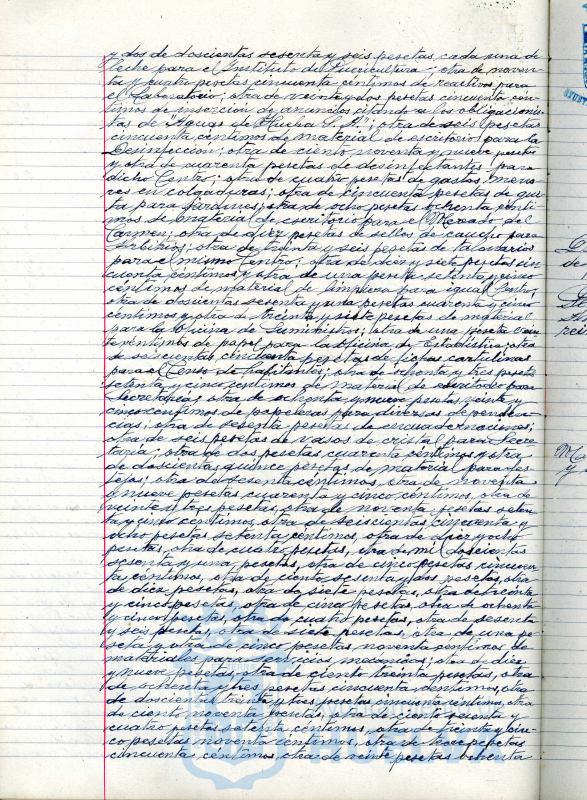 y dos de doscientas sesenta y seis pesetas cada una de
leche para el Instituto de Puericultura; otra de noven-
ta y cuatro pesetas cincuenta céntimos de reactivos para
el Laboratorio; otra de veinte y dos pesetas cincuenta cén-
timos de inserción de anuncios citando a los obligacionis-
tas de "Aguas de Huelva S. A."; otra de seis pesetas
cincuenta céntimos de material de escritorio para la
Desinfección; otra de ciento noventa y nueve pesetas
y otra de cuarenta pesetas de desinfectantes para
dicho Centro; otra de cuatro pesetas de gastos meno-
res en colgaduras; otra de cincuenta pesetas de
para jardines; otra de ocho pesetas ochenta cénti-
mos de material de escritorio para el Mercado del
Carmen; otra de diez pesetas de sellos de caucho para
Arbitrios; otra de treinta y seis pesetas de talonarios
para el mismo Centro; otra de diez y siete pesetas cin-
cuenta céntimos y otra de una peseta setenta y cinco
céntimos de material de limpieza para igual Centro;
otra de doscientas sesenta y una pesetas cuarenta y cinco
céntimos y otra de treinta y siete pesetas de material
para la Oficina de Suministros; otra de una peseta
céntimos de papel para la oficina de Estadística; otra
de seiscientas cincuenta pesetas de fichas cartulinas
para el Censo de habitantes; otra de ochenta y tres pesetas
setenta y cinco céntimos de material de escritorio para
Secretaría; otra de ochenta y nueve pesetas veinte y
cinco céntimos de papeleras para diversas dependen-
cias; otra de sesenta pesetas de encuadernaciones;
otra de seis pesetas de vasos de cristal para Secre-
taría; otra de dos pesetas cuarenta céntimos y otra
de doscientas quince pesetas de material para fes-
tejos; otra de sesenta céntimos, otra de noventa
y nueve pesetas cuarenta y cinco céntimos, otra de
veinte y tres pesetas, otra de noventa pesetas seten-
ta y cinco céntimos, otra de seiscientas cincuenta y
ocho pesetas setenta céntimos, otra de diez y ocho
pesetas, otra de cuatro pesetas, otra de mil doscientas
sesenta y una pesetas, otra de cinco pesetas cincuen-
ta céntimos, otra de ciento sesenta y dos pesetas, otra
de diez pesetas, otra de siete pesetas, otra de treinta
y cinco pesetas, otra de cinco pesetas, otra de ochenta
y cinco pesetas, otra de cuatro pesetas, otra de sesenta
y seis pesetas, otra de siete pesetas, otra de una pe-
seta y otra de cinco pesetas noventa céntimos de
materiales para servicios mecánicos; otra de diez
y nueve pesetas, otra de ciento treinta pesetas, otra
de ochenta y tres pesetas cincuenta céntimos, otra
de doscientas treinta y tres pesetas cincuenta céntimos, otra
de ciento noventa pesetas, otra de ciento setenta y
cuatro pesetas setenta céntimos, otra de treinta y cin-
co pesetas noventa céntimos, otra de trece pesetas
cincuenta céntimos, otra de veinte pesetas ochenta